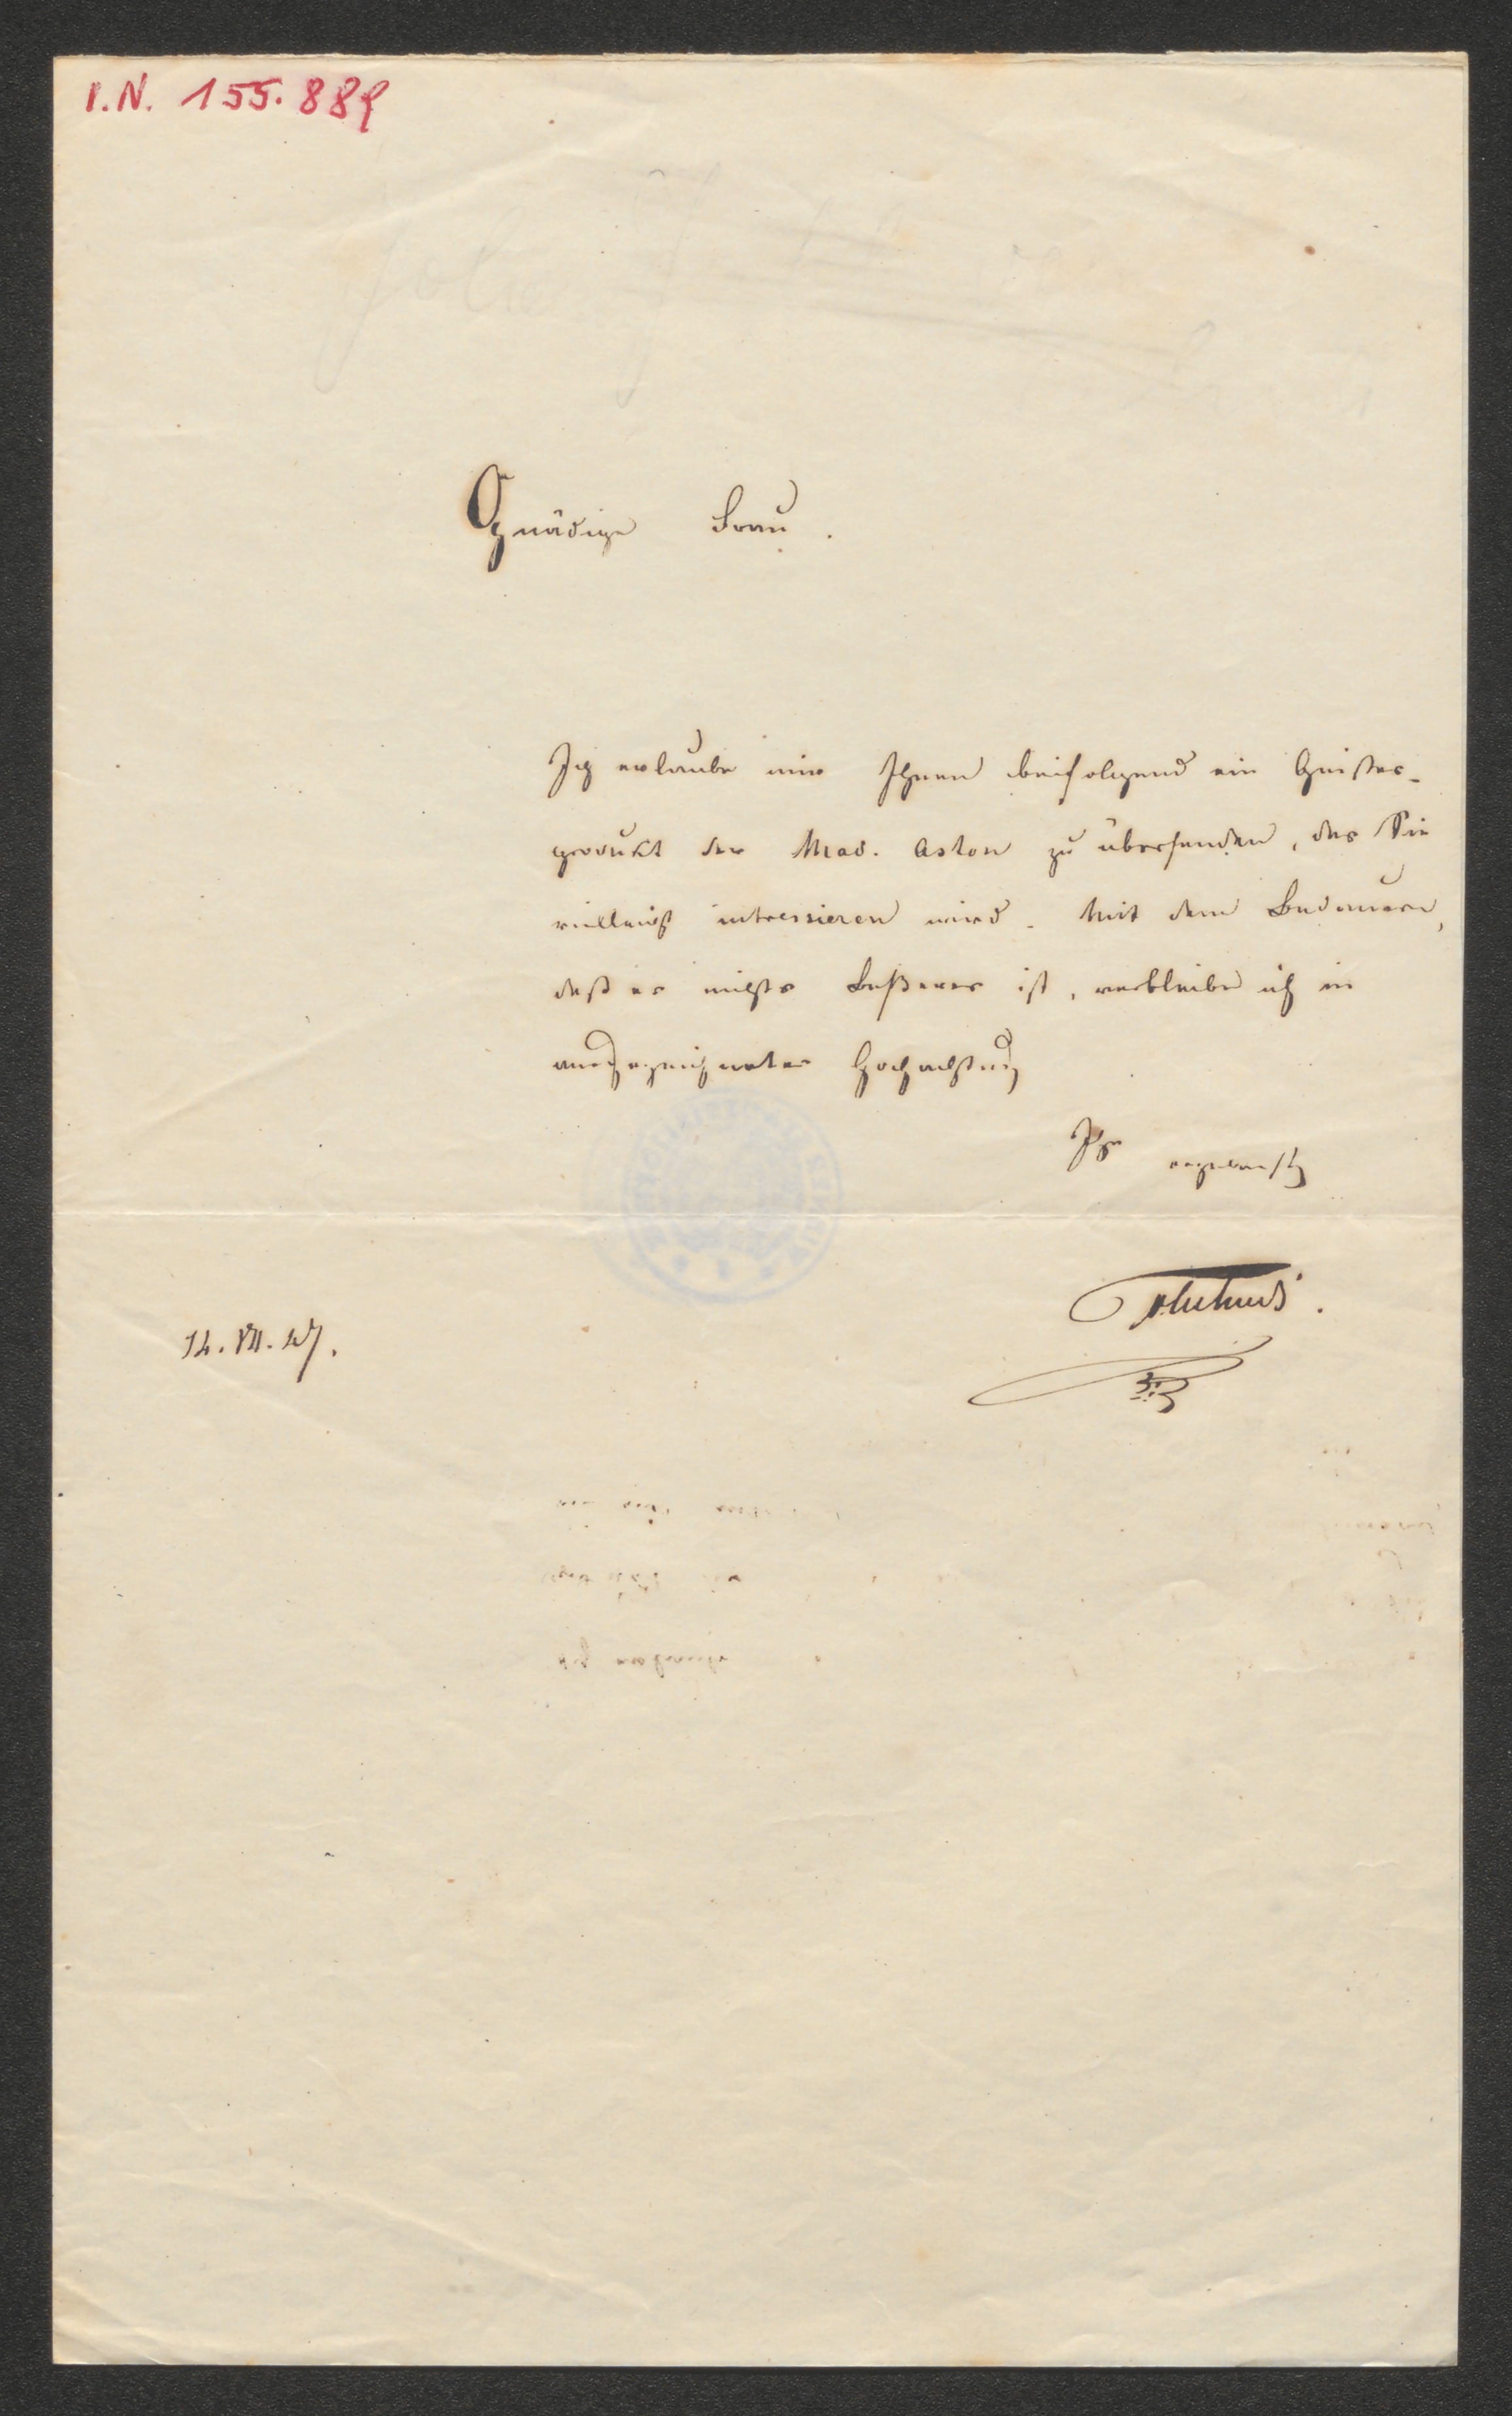 I.N. 155.889
Gnädige Frau.
Ich erlaube mir Ihnen beifolgend ein Geistes-
produkt der Mad. Aston zu übersenden, das Sie
vielleicht intressieren wird. Mit dem Bedauern,
daß es nichts Beßeres ist, verbleibe ich in
ausgezeichneter Hochachtung
Ihr ergebenster
14. VII. 47.